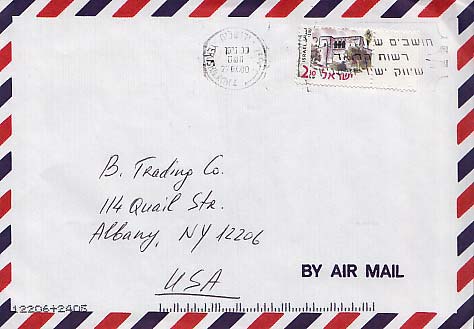 חושבים שיווק
רשות הדואר
שיווק ישיר
ISRAEL
2.10 ישראל
B. Trading Co.
114 Quail Str.
Albany, NY 12206
USA
BY AIR MAIL
12206+2405